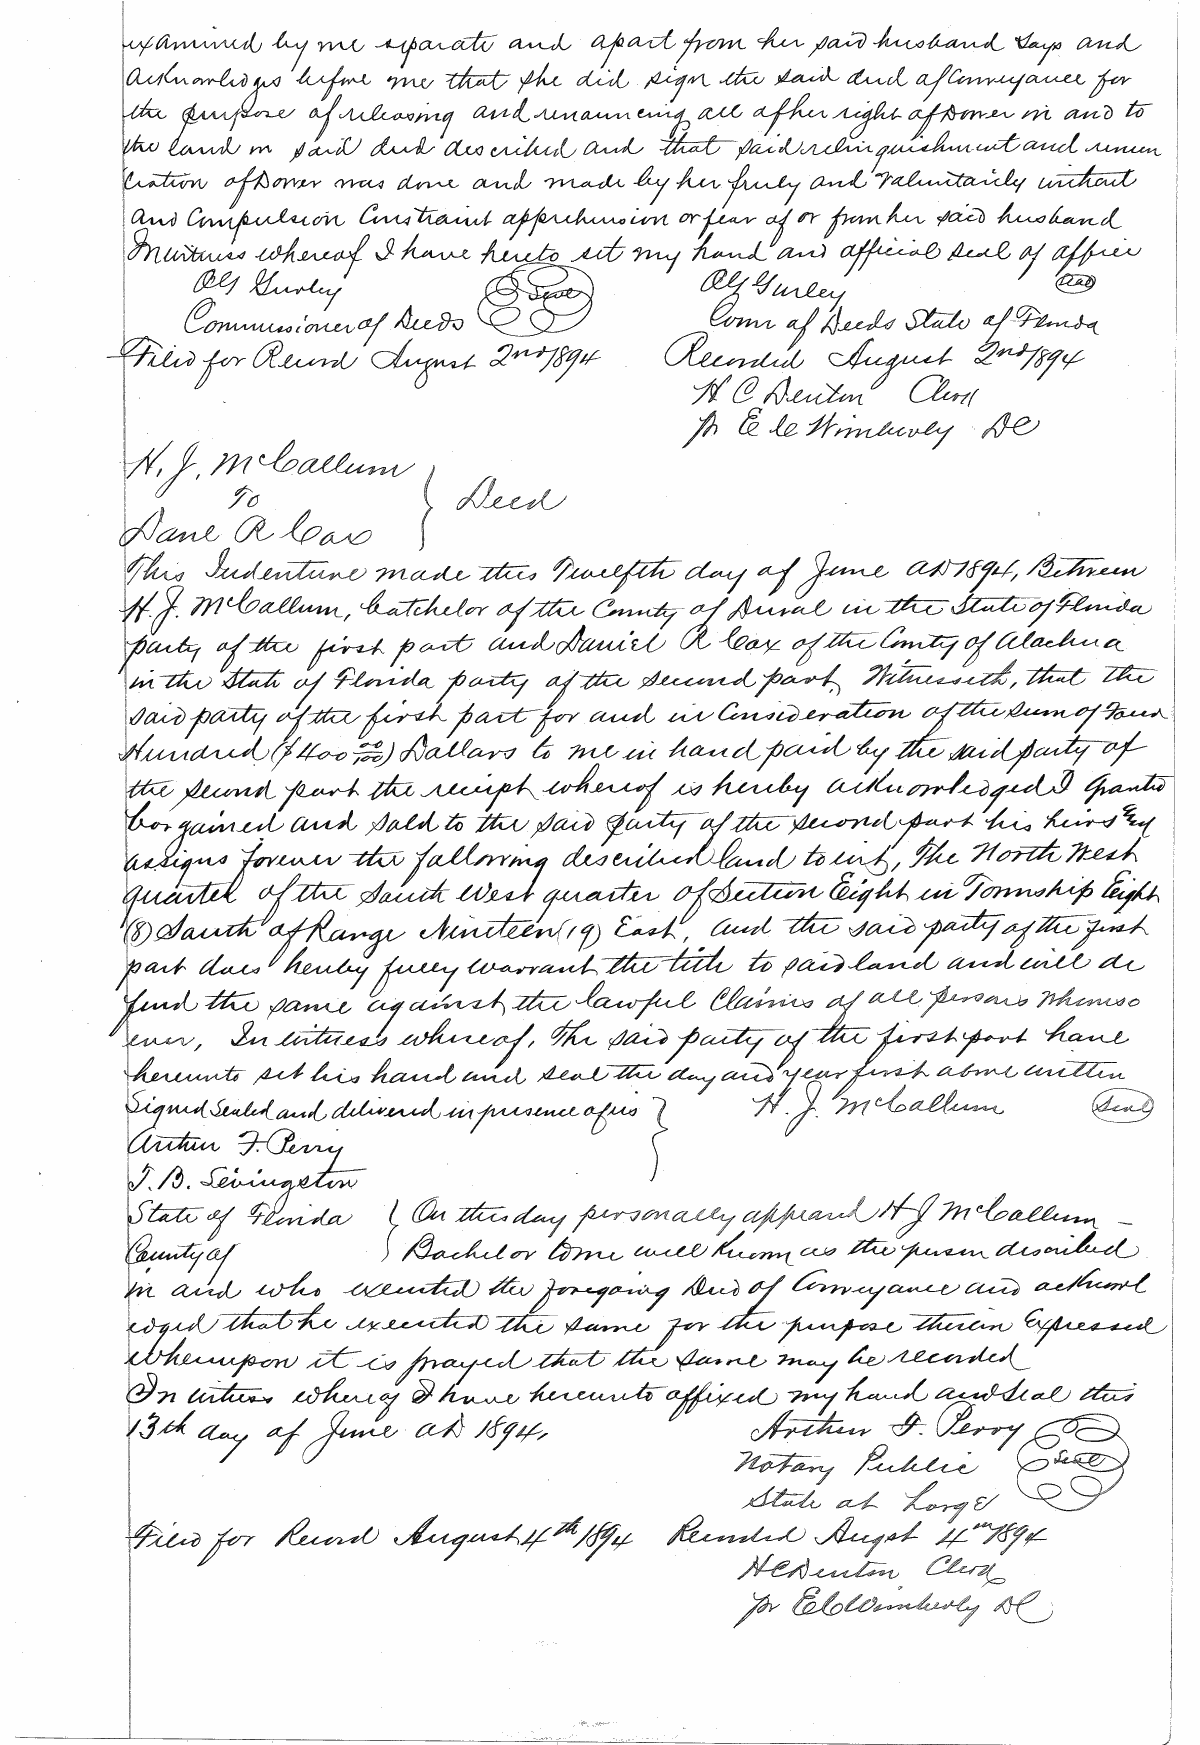 examined by me separate and apart from her said husband says and
Acknowledges before me that she did sign the said deed of Conveyance for
the purpose of releasing and renouncing all of her right of Dower in and to
the land in said deed described and that said relinquishment and renun
ciation of Dower was done and made by her freely and Voluntarily without
And Compulsion Constraint apprehension or fear of or from her said husband
In witness whereof I have hereto set my hand and official seal of office
Gurley Seal Gurley Seal
Commissioner of Deeds Com of Deeds State of Florida
Filed for Record August 2nd 1894 Recorded August 2nd 1894
H C Denton Clerk
pr E C Wimberly DC
H. J. McCallum
To Deed
Dane R Cox
This Indenture made this Twelfth day of June AD 1894, Between
H. J. McCallum, batchelor of the County of Duval in the State of Florida
party of the first part and Daniel R Cox of the Conty of Alachua
in the State of Florida party of the second part, Witnesseth, that the
said party of the first part for and in Consideration of the sum of Four
Hundred ($400 00/100) Dollars to me in hand paid by the said party of
the second part the receipt whereof is hereby acknowledged I Granted
bargained and sold to the said party of the second part his heirs and
assigns forever the following described land towit, The North West
quarter of the South West quarter of Section Eight in Township Eight
(8) South of Range Nineteen (19) East, And the said party of the first
part does hereby fully warrant the title to said land and will de
fend the same against the lawful Claims of all persons Whomso
ever, In witness whereof, The said party of the first part have
hereunto set his hand and seal the day and year first above written
Signed Sealed and delivered in presence of us H. J. McCallum Seal
Arthur F. Perry
J. B. Levingston
State of Florida On this day personally appeared H J McCallum
County of Bachelor to me well known as the person described
in and who executed the foregoing Deed of Conveyance and acknowl
edged that he executed the same for the purpose therein Expressed
Whereupon it is prayed that the same may be recorded
In witness whereof I have hereunto affixed my hand and seal this
13th day of June AD 1894, Arthur F. Perry
Notary Public Seal
State at Large
Filed for Record August 4th 1894 Recorded Augst 4th 1894
H C Denton Clerk
pr E C Wimberly DC